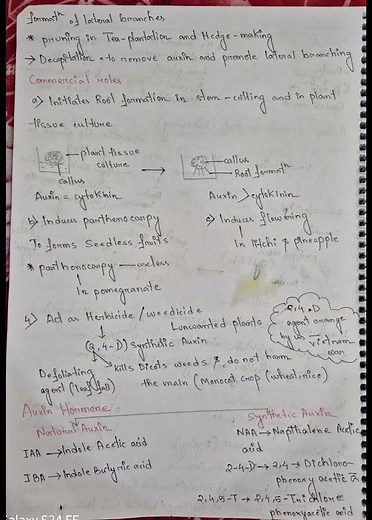 formatn of lateral branches
* pruning in Tea-plantation and Hedge-making
→ Decapitation → to remove auxin and promote lateral branching
Commercial roles
a) Initiates Root formation in stem-cutting and in plant
tissue culture
plant tissue culture
callus
→
callus
Root formatn
Auxin = cytokinin
Auxin > cytokinin
b) Induces parthenocarpy
To forms Seedless fruits
* parthenocarpy — useless
In pomegranate
c) Induces flowering
In litchi & pineapple
4) Act as Herbicide / weedicide
↳ unwanted plants
(2,4-D) Synthetic Auxin
kills Dicots weeds & do not harm
the main (Monocot crop (wheat, rice)
Defoliating
agent (leaf fall)
2,4-D
agent orange
by us in
vietnam
war
Auxin Hormone
Natural Auxin
IAA → Indole Acetic acid
IBA → Indole Butyric acid
Synthetic Auxin
NAA → Napthalene Acetic
acid
2-4-D → 2,4 → Dichloro-
phenoxy acetic a
2,4,5-T → 2,4,5-Trichloro
phenoxyacetic acid
Galaxy S24 FE